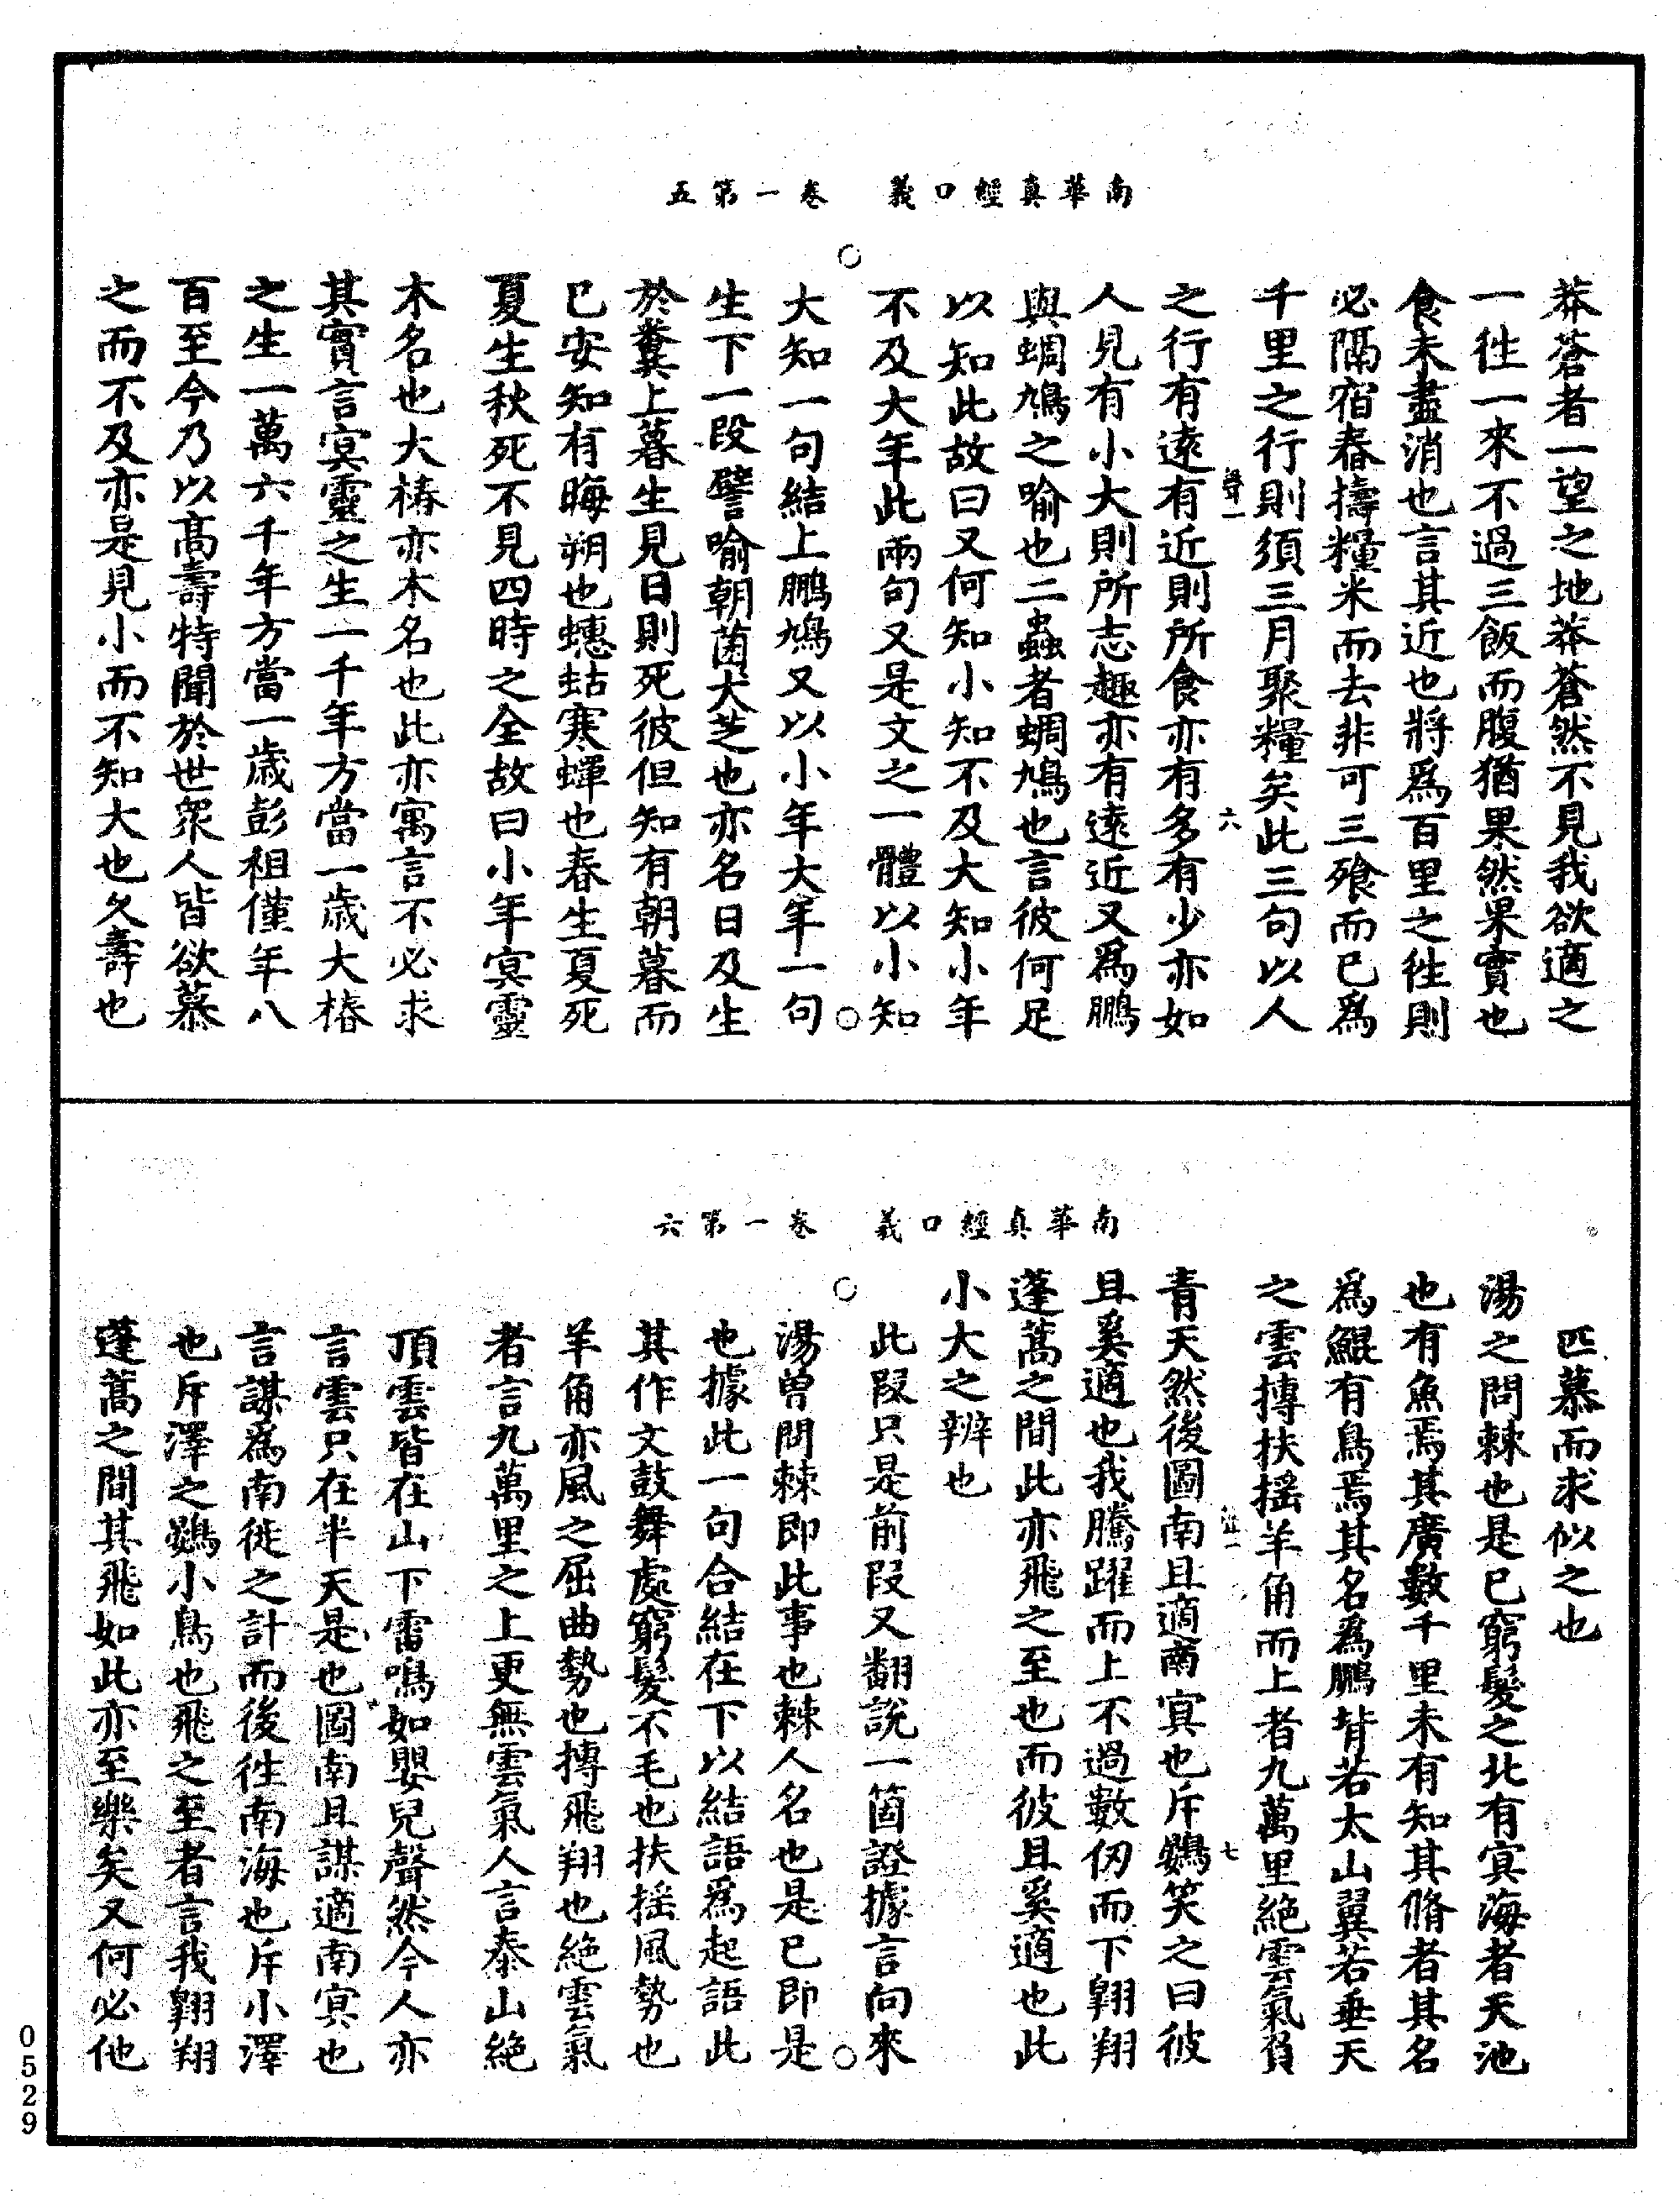 南華真經口義　卷一第五
莽蒼者一望之地莽蒼然不見我欲適之
一徃一來不過三飯而腹猶果然果實也
食未盡消也言其近也將爲百里之徃則
必隔宿舂擣糧米而去非可三飧而已爲
千里之行則須三月聚糧矣此三句以人
六
之行有遠有近則所食亦有多有少亦如
人見有小大則所志趣亦有遠近又爲鵬
與蜩鳩之喻也二蟲者蜩鳩也言彼何足
以知此故曰又何知小知不及大知小年
不及大年此兩句又是文之一體以小知
大知一句結上鵬鳩又以小年大年一句
生下一段譬喻朝菌大芝也亦名日及生
於糞上暮生見日則死彼但知有朝暮而
已安知有晦朔也蟪蛄寒蟬也春生夏死
夏生秋死不見四時之全故曰小年冥靈
木名也大椿亦木名也此亦寓言不必求
其實言冥靈之生一千年方當一歲大椿
之生一萬六千年方當一歲彭祖僅年八
百至今乃以髙壽特聞於世衆人皆欲慕
之而不及亦是見小而不知大也久壽也
南華真經口義　卷一第六
匹慕而求似之也
湯之問棘也是已窮髮之北有冥海者天池
也有魚焉其廣數千里未有知其脩者其名
爲鯤有鳥焉其名爲鵬背若太山翼若垂天
之雲摶扶摇羊角而上者九萬里絶雲氣負
七
青天然後圖南且適南冥也斥鷃笑之曰彼
且奚適也我騰躍而上不過數仞而下翱翔
蓬蒿之間此亦飛之至也而彼且奚適也此
小大之辨也
此段只是前段又翻說一箇證據言向來
湯曾問棘即此事也棘人名也是已即是
也據此一句合結在下以結語爲起語此
其作文鼓舞處窮髮不毛也扶摇風勢也
羊角亦風之屈曲勢也摶飛翔也絶雲氣
者言九萬里之上更無雲氣人言泰山絶
頂雲皆在山下雷鳴如嬰兒聲然今人亦
言雲只在半天是也圖南且謀適南冥也
言謀爲南徙之計而後徃南海也斥小澤
也斥澤之鷃小鳥也飛之至者言我翱翔
蓬蒿之間其飛如此亦至樂矣又何必他
0529